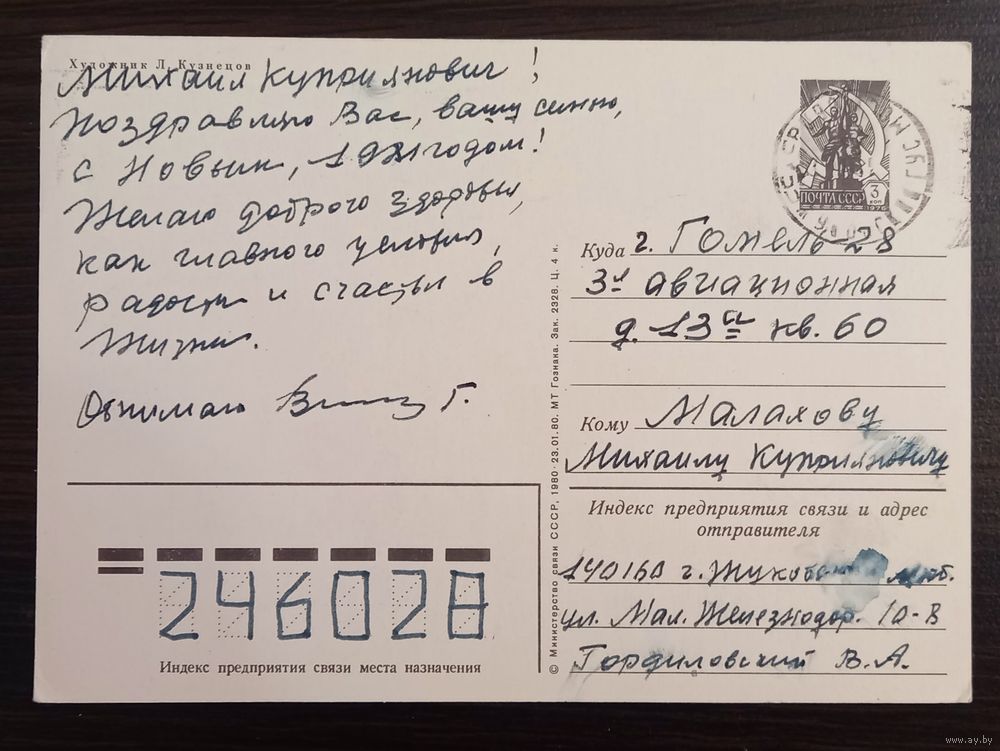 Художник Л. Кузнецов
Михаил Куприянович!
Поздравляю Вас, вашу семью,
с Новым, годом!
Желаю доброго здоровья,
как главного условия,
радости и счастья в
жизни.
Обнимаю Г.
ПОЧТА СССР 3 коп
1976
Куда г. Гомель 28
3я авиационная
д. 13 кв. 60
Кому Малахову
Михаилу Куприяновичу
Индекс предприятия связи и адрес
отправителя
140160 г. Жуковский
ул. Мал. Железнодор. 10-В
Гордиловский В.А.
246028
Индекс предприятия связи места назначения
© Министерство связи СССР, 1980 · 23.01.80. МТ Гознака. Зак. 2328. Ц. 4 к.
www.ay.by